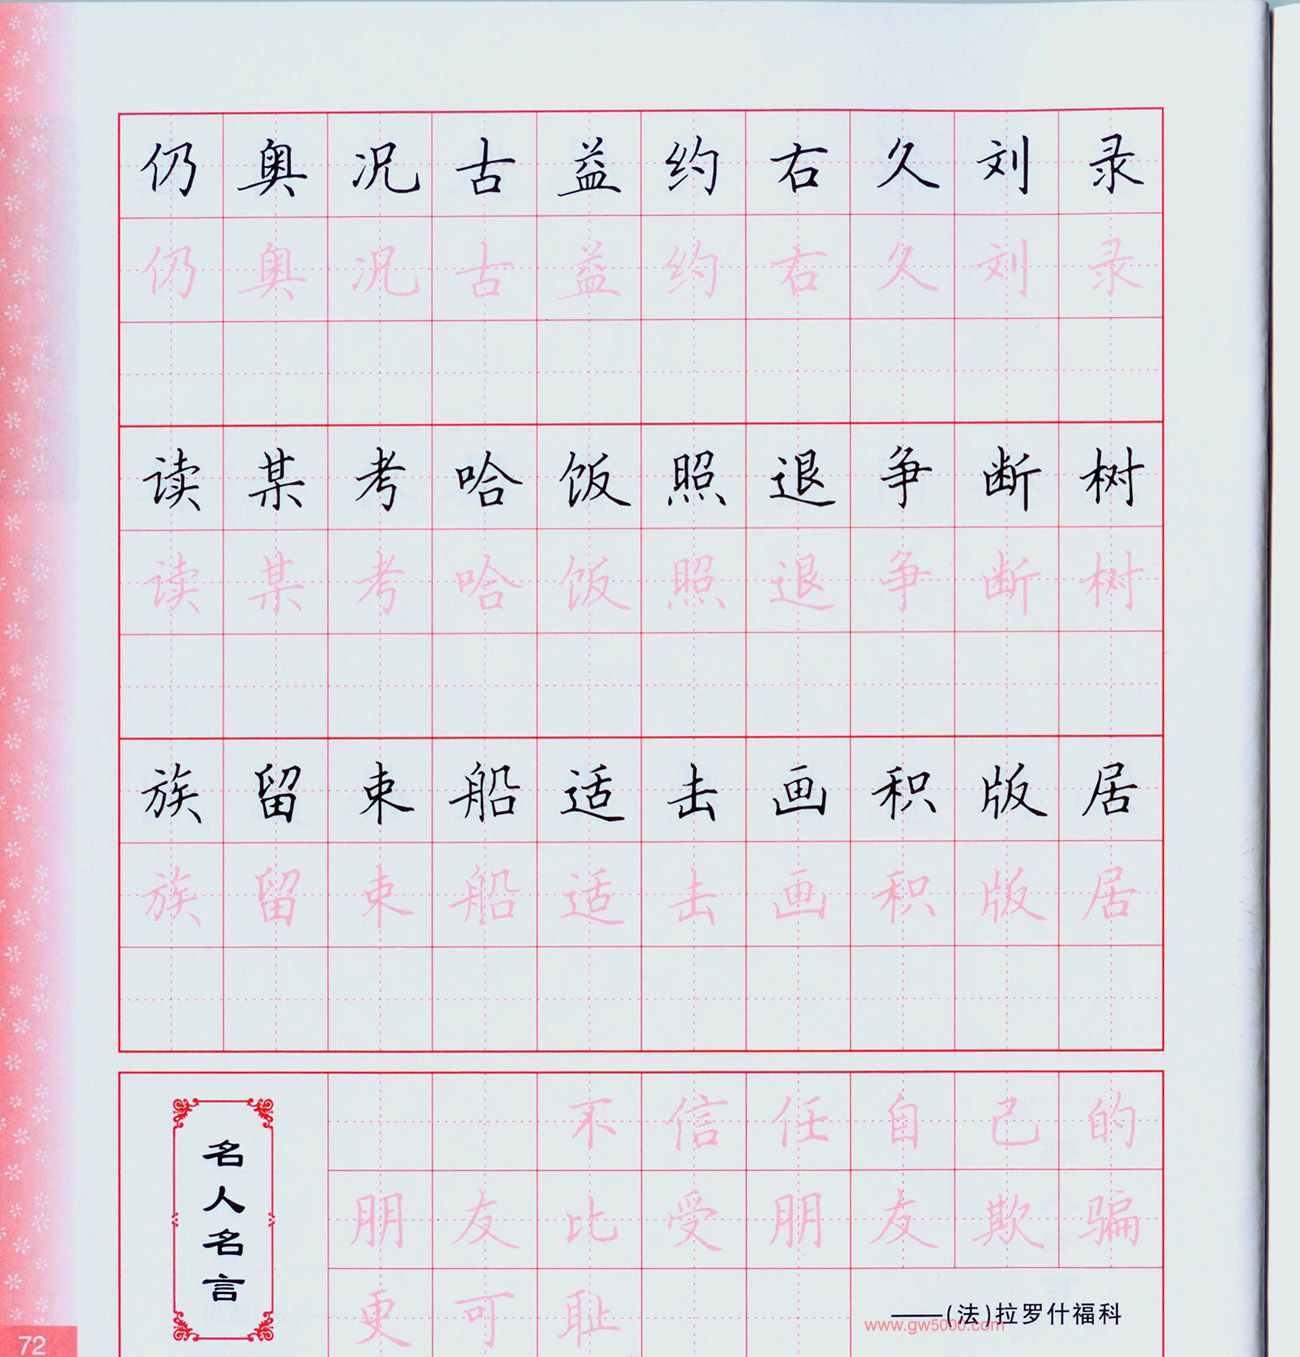 仍奥况古益约右久刘录
仍奥况古益约右久刘录
读某考哈饭照退争断树
读某考哈饭照退争断树
族留束船适击画积版居
族留束船适击画积版居
名人名言
不信任自己的
朋友比受朋友欺骗
更可耻
——(法)拉罗什福科
www.gw5000.com
72